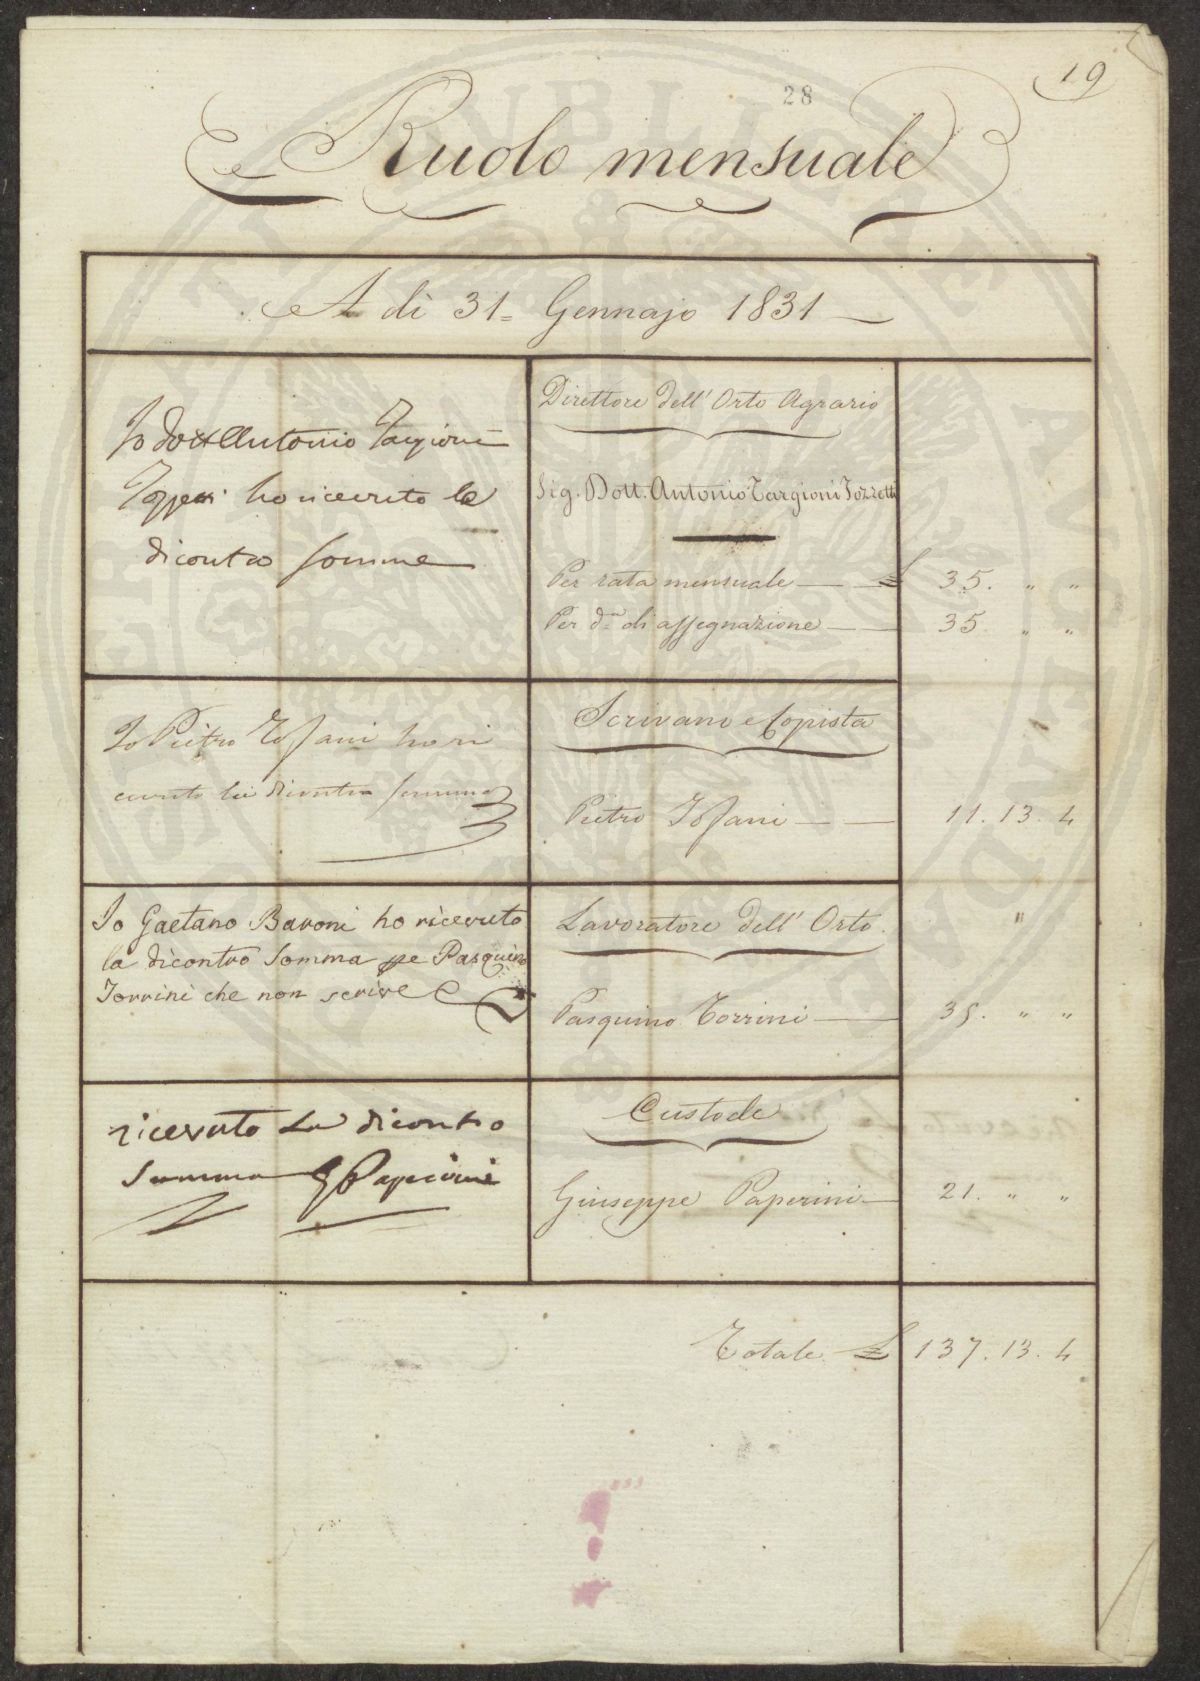 19
28
Ruolo mensuale
A dì 31 = Gennajo 1831
Io Dott Antonio Targioni
Tozzetti ho ricevuto le
dicontro somme
Direttore dell' Orto Agrario
Sig. Dott. Antonio Targioni Tozzetti
Per rata mensuale £ 35. " "
Per da di assegnazione 35. " "
Io Pietro Tofani ho ri
cevuto la dicontro somma
Scrivano e Copista
Pietro Tofani 11. 13. 4
Io Gaetano Baroni ho ricevuto
la dicontro Somma pe Pasquino
Torrini che non scrive
Lavoratore dell' Orto.
"
Pasquino Torrini 35. " "
ricevuto La dicontro
Somma G Paperini
Custode
Giuseppe Paperini 21. " "
Totale £ 137. 13. 4